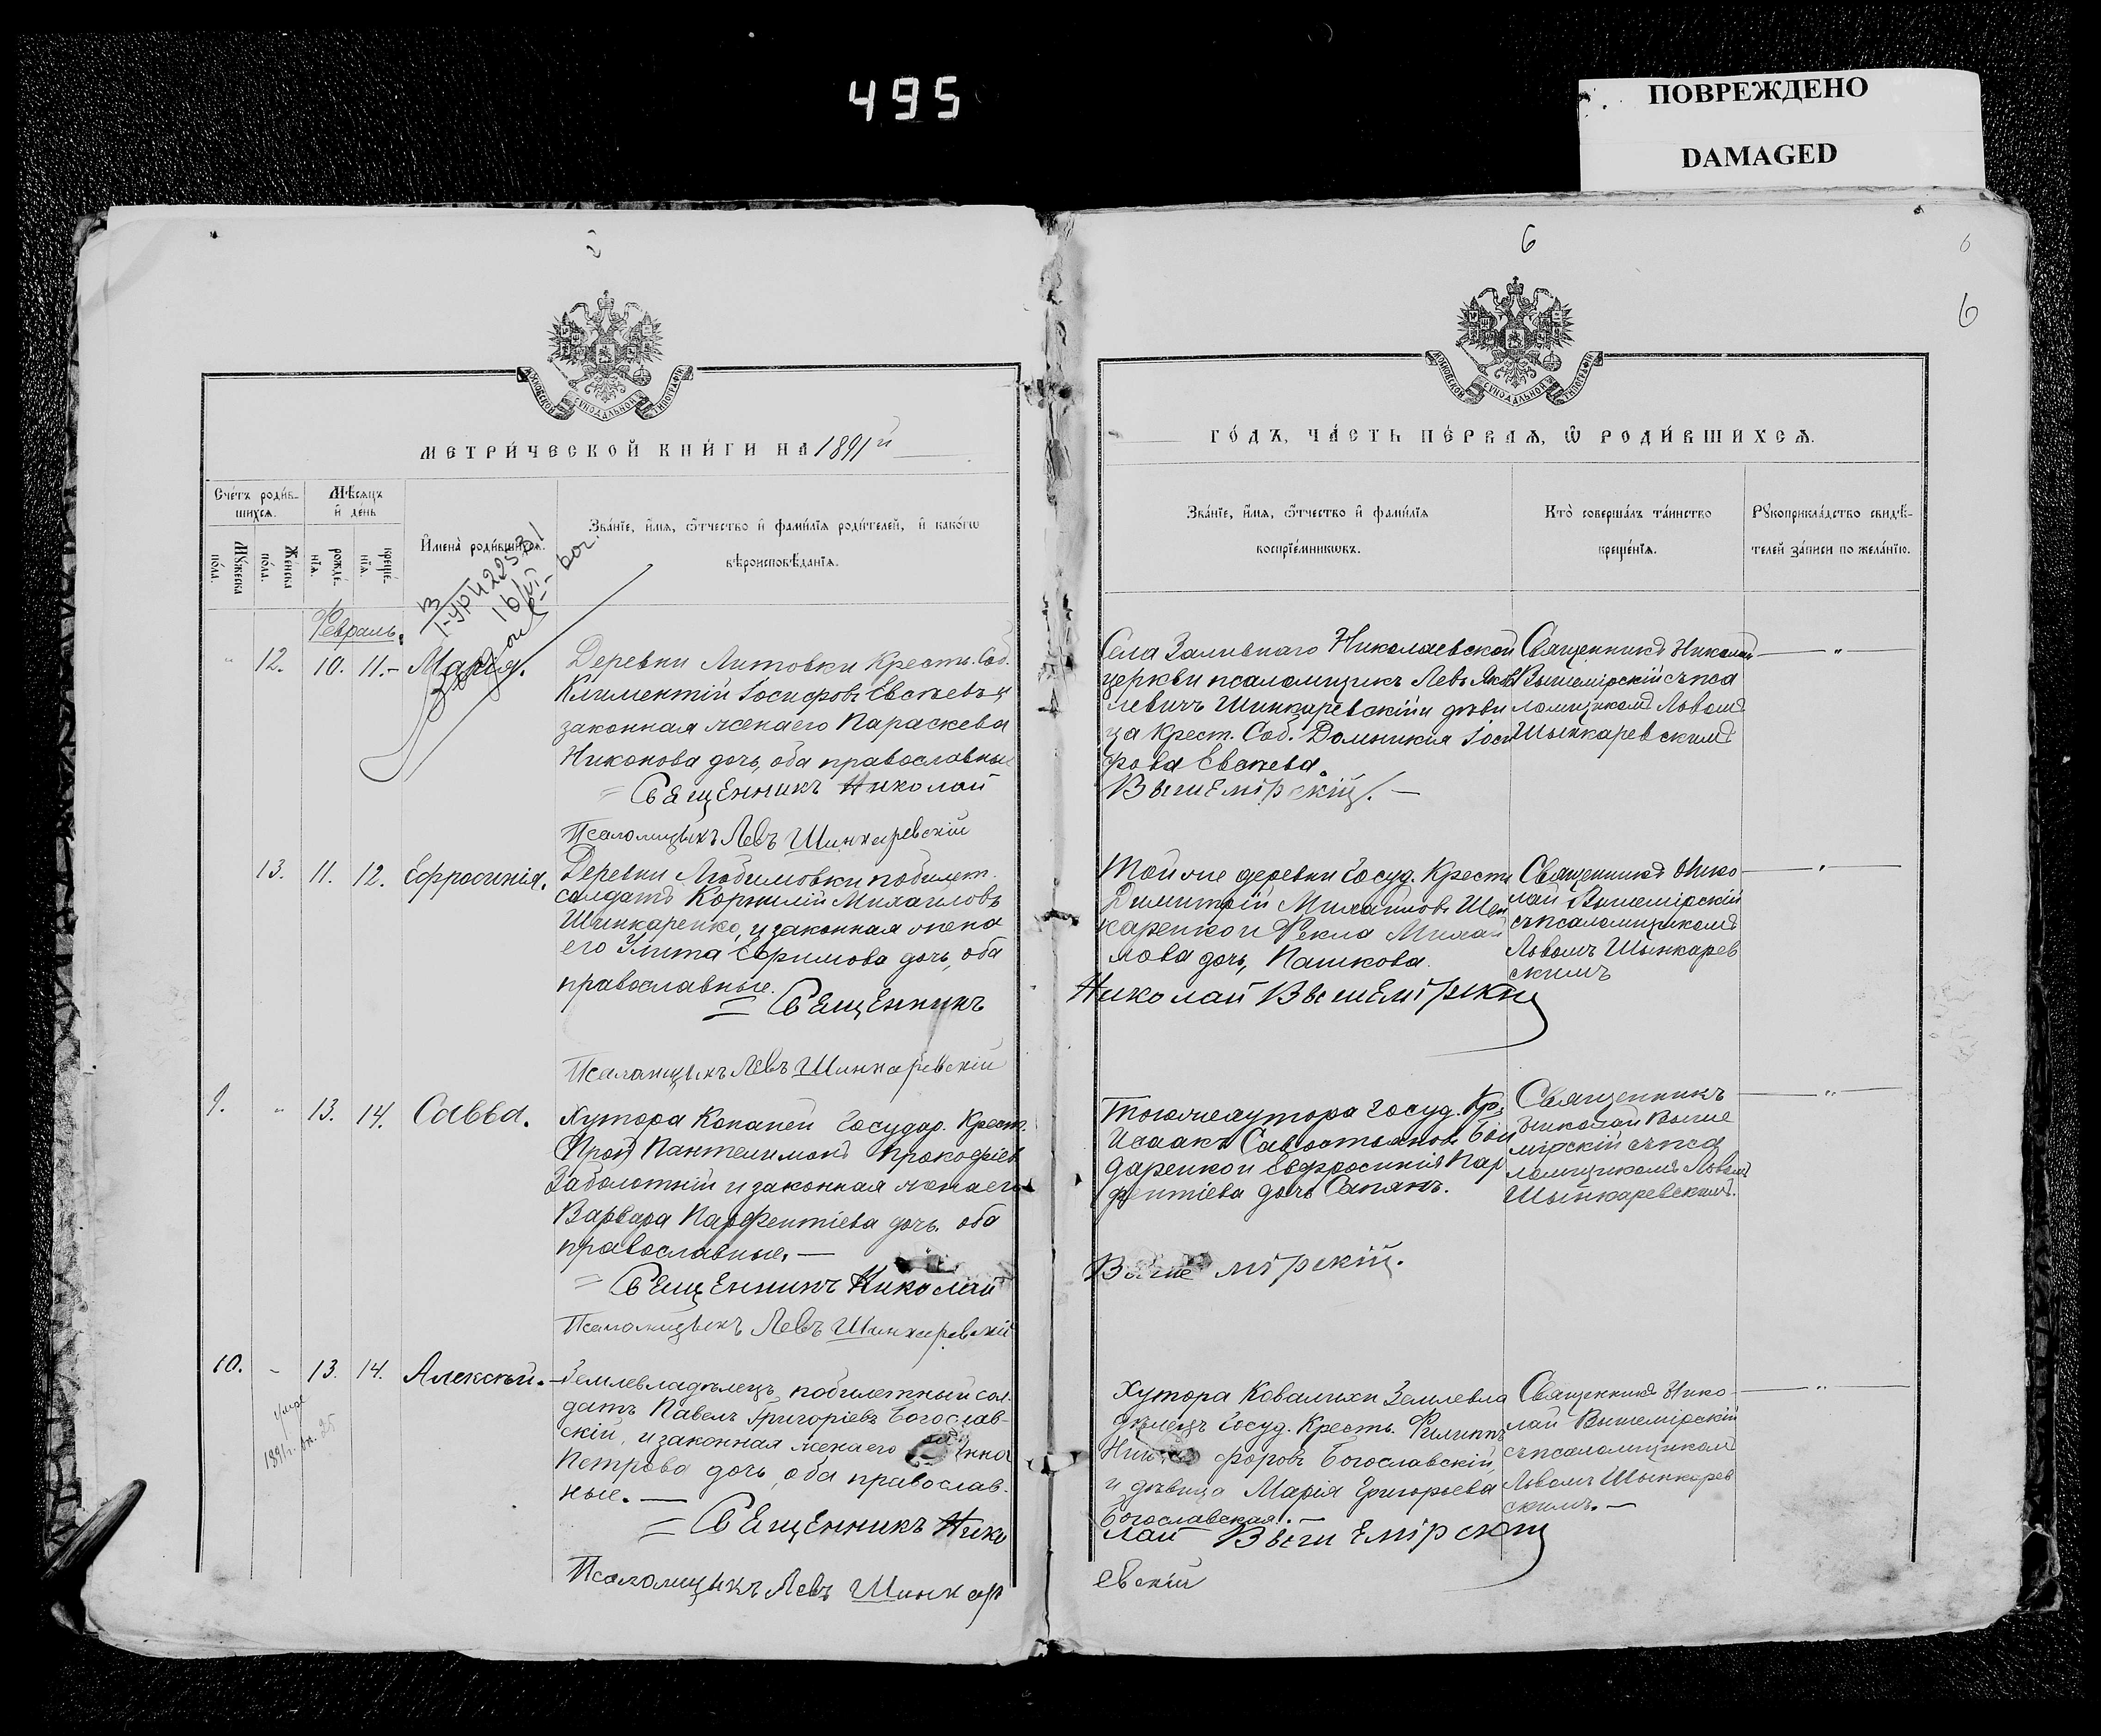 495
ПОВРЕЖДЕНО
DAMAGED
6
6
6
МОСКОВСКОЙ СѴНОДАЛЬНОЙ ТИПОГРАФІИ
МОСКОВСКОЙ СѴНОДАЛЬНОЙ ТИПОГРАФІИ
МЕТРИ́ЧЕСКОЙ КНИ́ГИ НА 1891й
ГО́ДЪ, ЧА́СТЬ ПЕ́РВАѦ, Ѿ РОДИ́ВШИХСѦ.
Сче́тъ роди́в-
шихсѧ.
Мꙋ́жеска
по́ла.
Же́нска
по́ла.
Мѣ́сѧцъ
и҆ день
рожде́-
нїѧ.
креще́-
нїѧ.
И҆мена̀ роди́вшихсѧ.
Зва́нїе, и҆́мѧ, ѻ҆́тчество и҆ фами́лїѧ роди́телей, и҆ како́гѡ
вѣроисповѣ́данїѧ.
Зва́нїе, и҆́мѧ, ѻ҆́тчество и҆ фами́лїѧ
воспрїе́мникѡвъ.
Кто̀ соверша́лъ та́инство
креще́нїѧ.
Рꙋкоприкла́дство свидѣ́-
телей за́писи по жела́нїю.
Февраль.
12. 10. 11. Марія.
Деревни Литовки Крестъ. Соб.
Климентій Іосифовъ Евтевъ и
законная жена его Параскева
Никонова дочь, оба православные
Священникъ Николай
Псаломщикъ Левъ Шинкаревскій
Села Заливнаго Николаевской
церкви псаломщикъ Левъ Яков
левичъ Шинкаревскій и дѣви
ца Крест. Соб. Домникія Іоси
фова Евтева.
Вышемірскій.
Священникъ Николай
Вышемірскій съ пса
ломщикомъ Львомъ
Шынкаревскимъ
13. 11. 12. Ефросинія.
Деревни Любимовки побилет.
солдатъ Корнилій Михаиловъ
Шинкаренко, и законная жена
его Улита Ефимова дочь, оба
православные.
Священникъ
Псаломщикъ Левъ Шинкаревскій
Той же деревни Госуд. Крестъ
Димитрій Михаиловъ Шин
каренко и Фекла Михаи
лова дочь, Пашкова.
Николай Вышемірскій
Священникъ Нико
лай Вышемірскій
съ псаломщикомъ
Львомъ Шынкарев
скимъ
9. 13. 14. Савва.
Хутора Копаней Государ. Крест.
Пантелимонъ Прокофіев
Заболотній и законная жена его
Варвара Парфентіева дочь, оба
православные.
Священникъ Николай
Псаломщикъ Левъ Шинкаревскій
Того же хутора Госуд. Кр.
Исаакъ Савостьяновъ Бон
даренко и Евфросинія Пар
фентіева дочь Сапянъ.
Вышемірскій.
Священникъ
Николай Выше
мірскій съ пса
ломщикомъ Львомъ
Шынкаревскимъ.
10. 13. 14. Алексѣй.
умре
1891 г.
Землевладѣлецъ, побилетный сол
датъ Павелъ Григоріевъ Богослав-
скій, и законная жена его Анна
Петрова дочь, оба православ-
ные.
Священникъ Нико
Псаломщикъ Левъ Шинкар
Хутора Ковалихи Землевла
дѣлецъ Госуд. Крестъ. Филиппъ
Никифоровъ Богославскій,
и дѣвица Марія Григорьева
Богославская.
лай Вышемірскій
евскій
Священникъ Нико-
лай Вышемірскій
съ псаломщикомъ
Львомъ Шынкарев
скимъ.